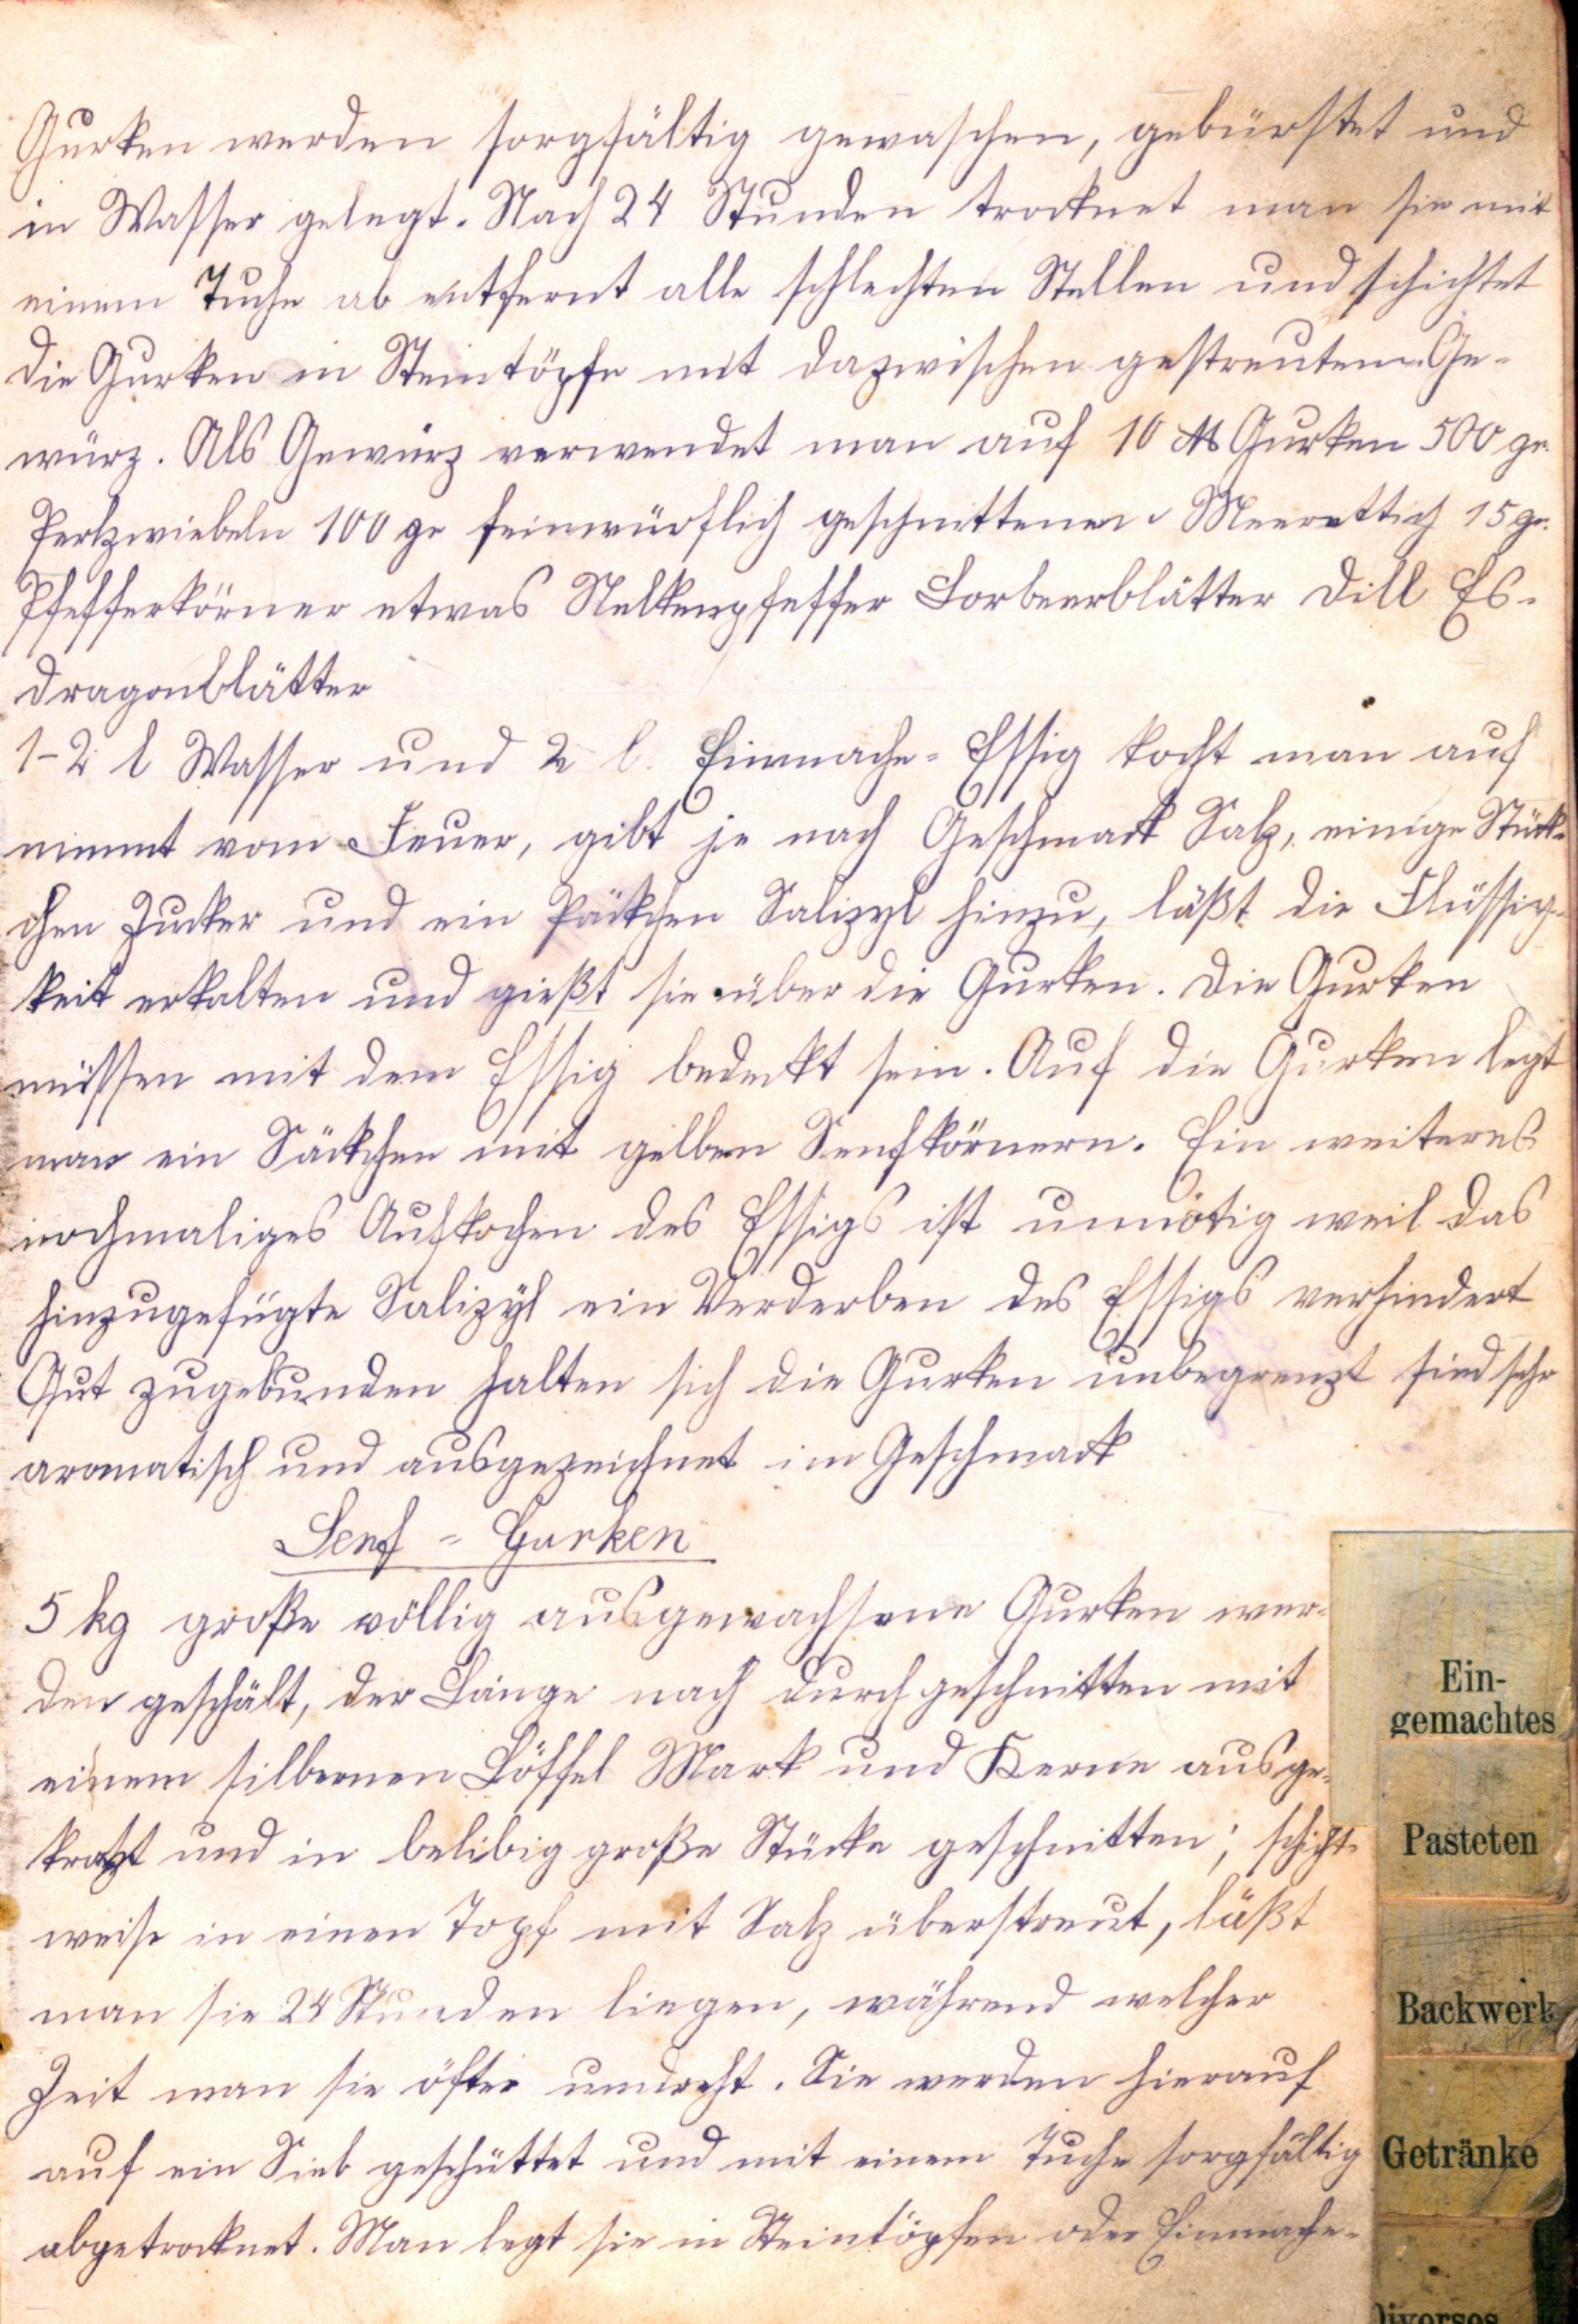 Gurken werden sorgfältig gewaschen, gebürstet und
in Wasser gelegt. Nach 24 Stunden trocknet man sie mit
einem Tuche ab entfernt alle schlechten Stellen und schichtet
die Gurken in Steintöpfe mit dazwischen gestreutem Ge-
würz. Als Gewürz verwendet man auf 10 ℔ Gurken 500 gr.
Perlzwiebeln 100 gr feinwürflich geschnittenen Meerrettich 15 gr.
Pfefferkörner etwas Nelkenpfeffer Lorbeerblätter Dill Es-
dragonblätter
1-2 l Wasser und 2 l. Einmache-Essig kocht man auf
nimmt vom Feuer, gibt je nach Geschmack Salz, einige Stück-
chen Zucker und ein Päckchen Salizyl hinzu, läßt die Flüssig-
keit erkalten und gießt sie über die Gurken. Die Gurken
müssen mit dem Essig bedeckt sein. Auf die Gurken legt
man ein Säckchen mit gelben Senfkörnern. Ein weiteres
nochmaliges Aufkochen des Essigs ist unnötig weil das
hinzugefügte Salizyl ein Verderben des Essigs verhindert
Gut zugebunden halten sich die Gurken unbegrenzt sind sehr
aromatisch und ausgezeichnet im Geschmack
Senf-Gurken
5 kg große völlig ausgewachsene Gurken wer-
den geschält, der Länge nach durchgeschnitten mit
einem silbernen Löffel Mark und Kerne ausge-
kratzt und in belibig große Stücke geschnitten; schicht-
weise in einen Topf mit Salz überstreut, läßt
man sie 24 Stunden liegen, während welcher
Zeit man sie öfter umdreht. Sie werden hierauf
auf ein Sieb geschüttet und mit einem Tuche sorgfältig
abgetrocknet. Man legt sie in Steintöpfen oder Einmache-
Ein-
gemachtes
Pasteten
Backwerk
Getränke
Diverses